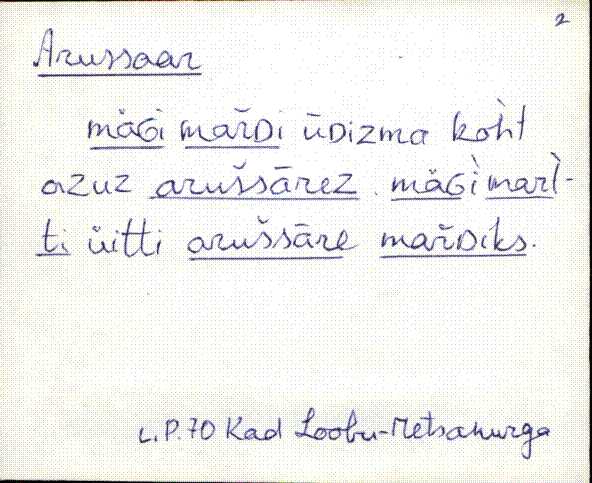 2
Arussaar
mäɢi mařᴅi ūᴅizma koh̀t
azuz aruššārez. mäɢì marì-
ti üitti aruššāre mařᴅiks.
L.P.70 Kad Loobu-Metsanurga